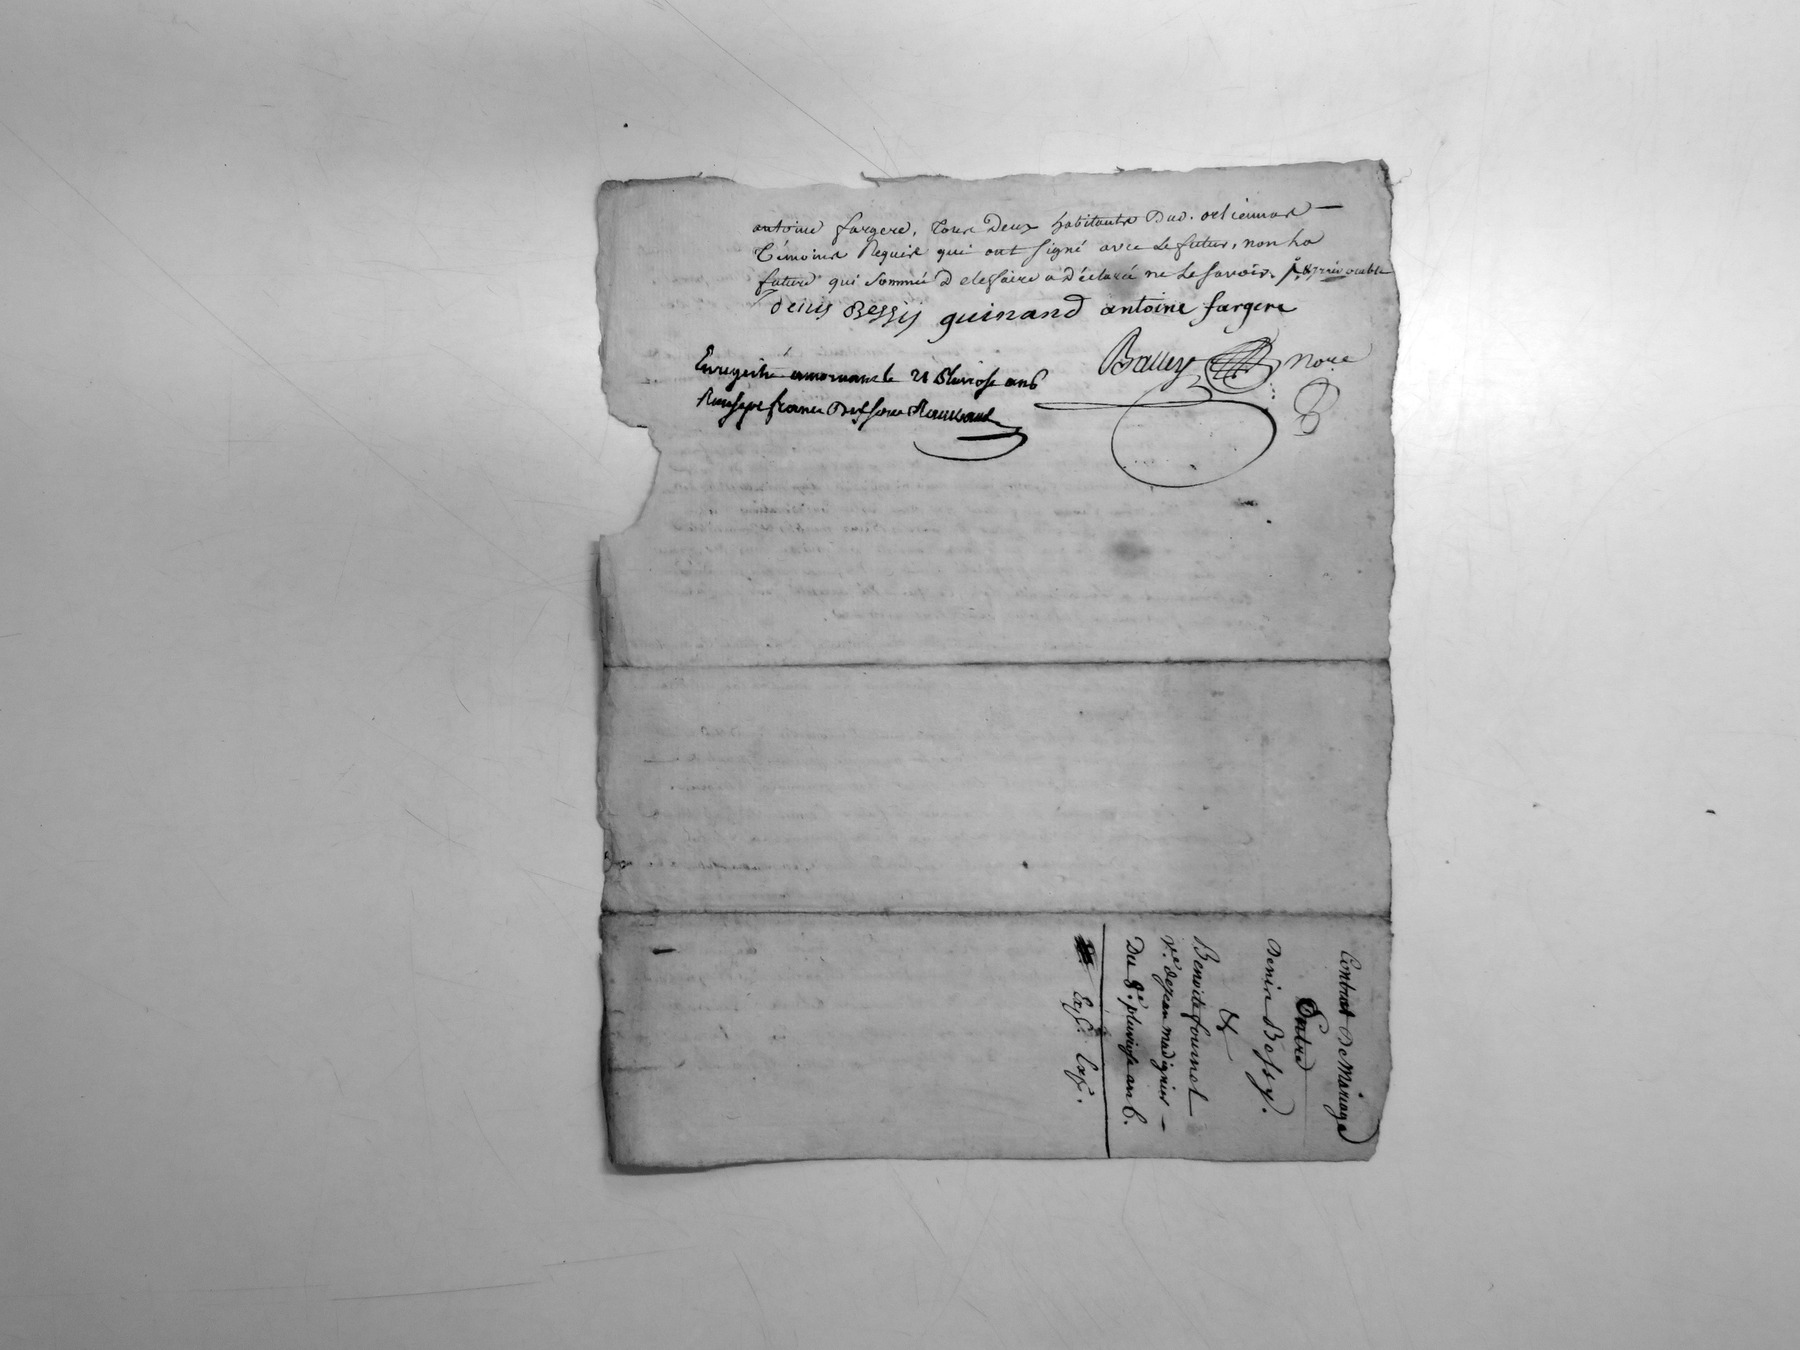 antoine fargere, tous Deux habitants Dud.
Témoins Requis qui ont signé avec Le futur, non La
future qui Sommé D elefaire a Déclaré ne Le Savoir.
denis Bessy guinand antoine fargere
Balley Nore
Enregistré le 21 Pluviose an 6
Reçu
Contrat De Mariage
Entre
Denis Bessy.
&
Benoite fournel
v.e de jean madignier —
Du 8.e pluviose an 6.
Exp. Exp.